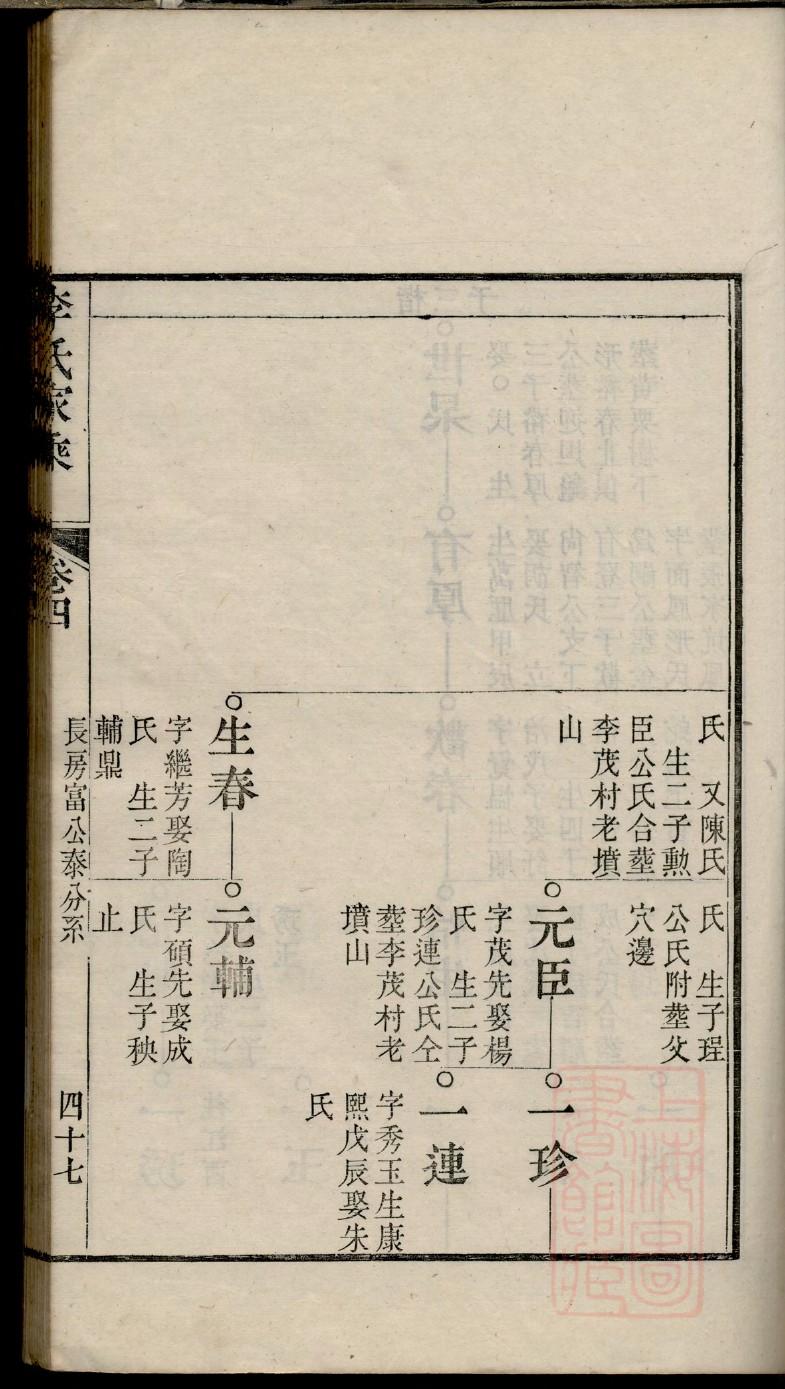 氏　又陳氏
生二子勲
臣公氏合塟
李茂村老墳
山
氏　生子珵
公氏附塟父
穴邊
元臣
字茂先娶楊
氏　生二子
珍連公氏仝
塟李茂村老
墳山
一珍
一連
字秀玉生康
熙戊辰娶朱
氏
生春
字繼芳娶陶
氏　生二子
輔鼎
元輔
字碩先娶成
氏　生子秧
止
李氏家乘
卷四
長房富公泰分系
四十七
上海圖書館藏